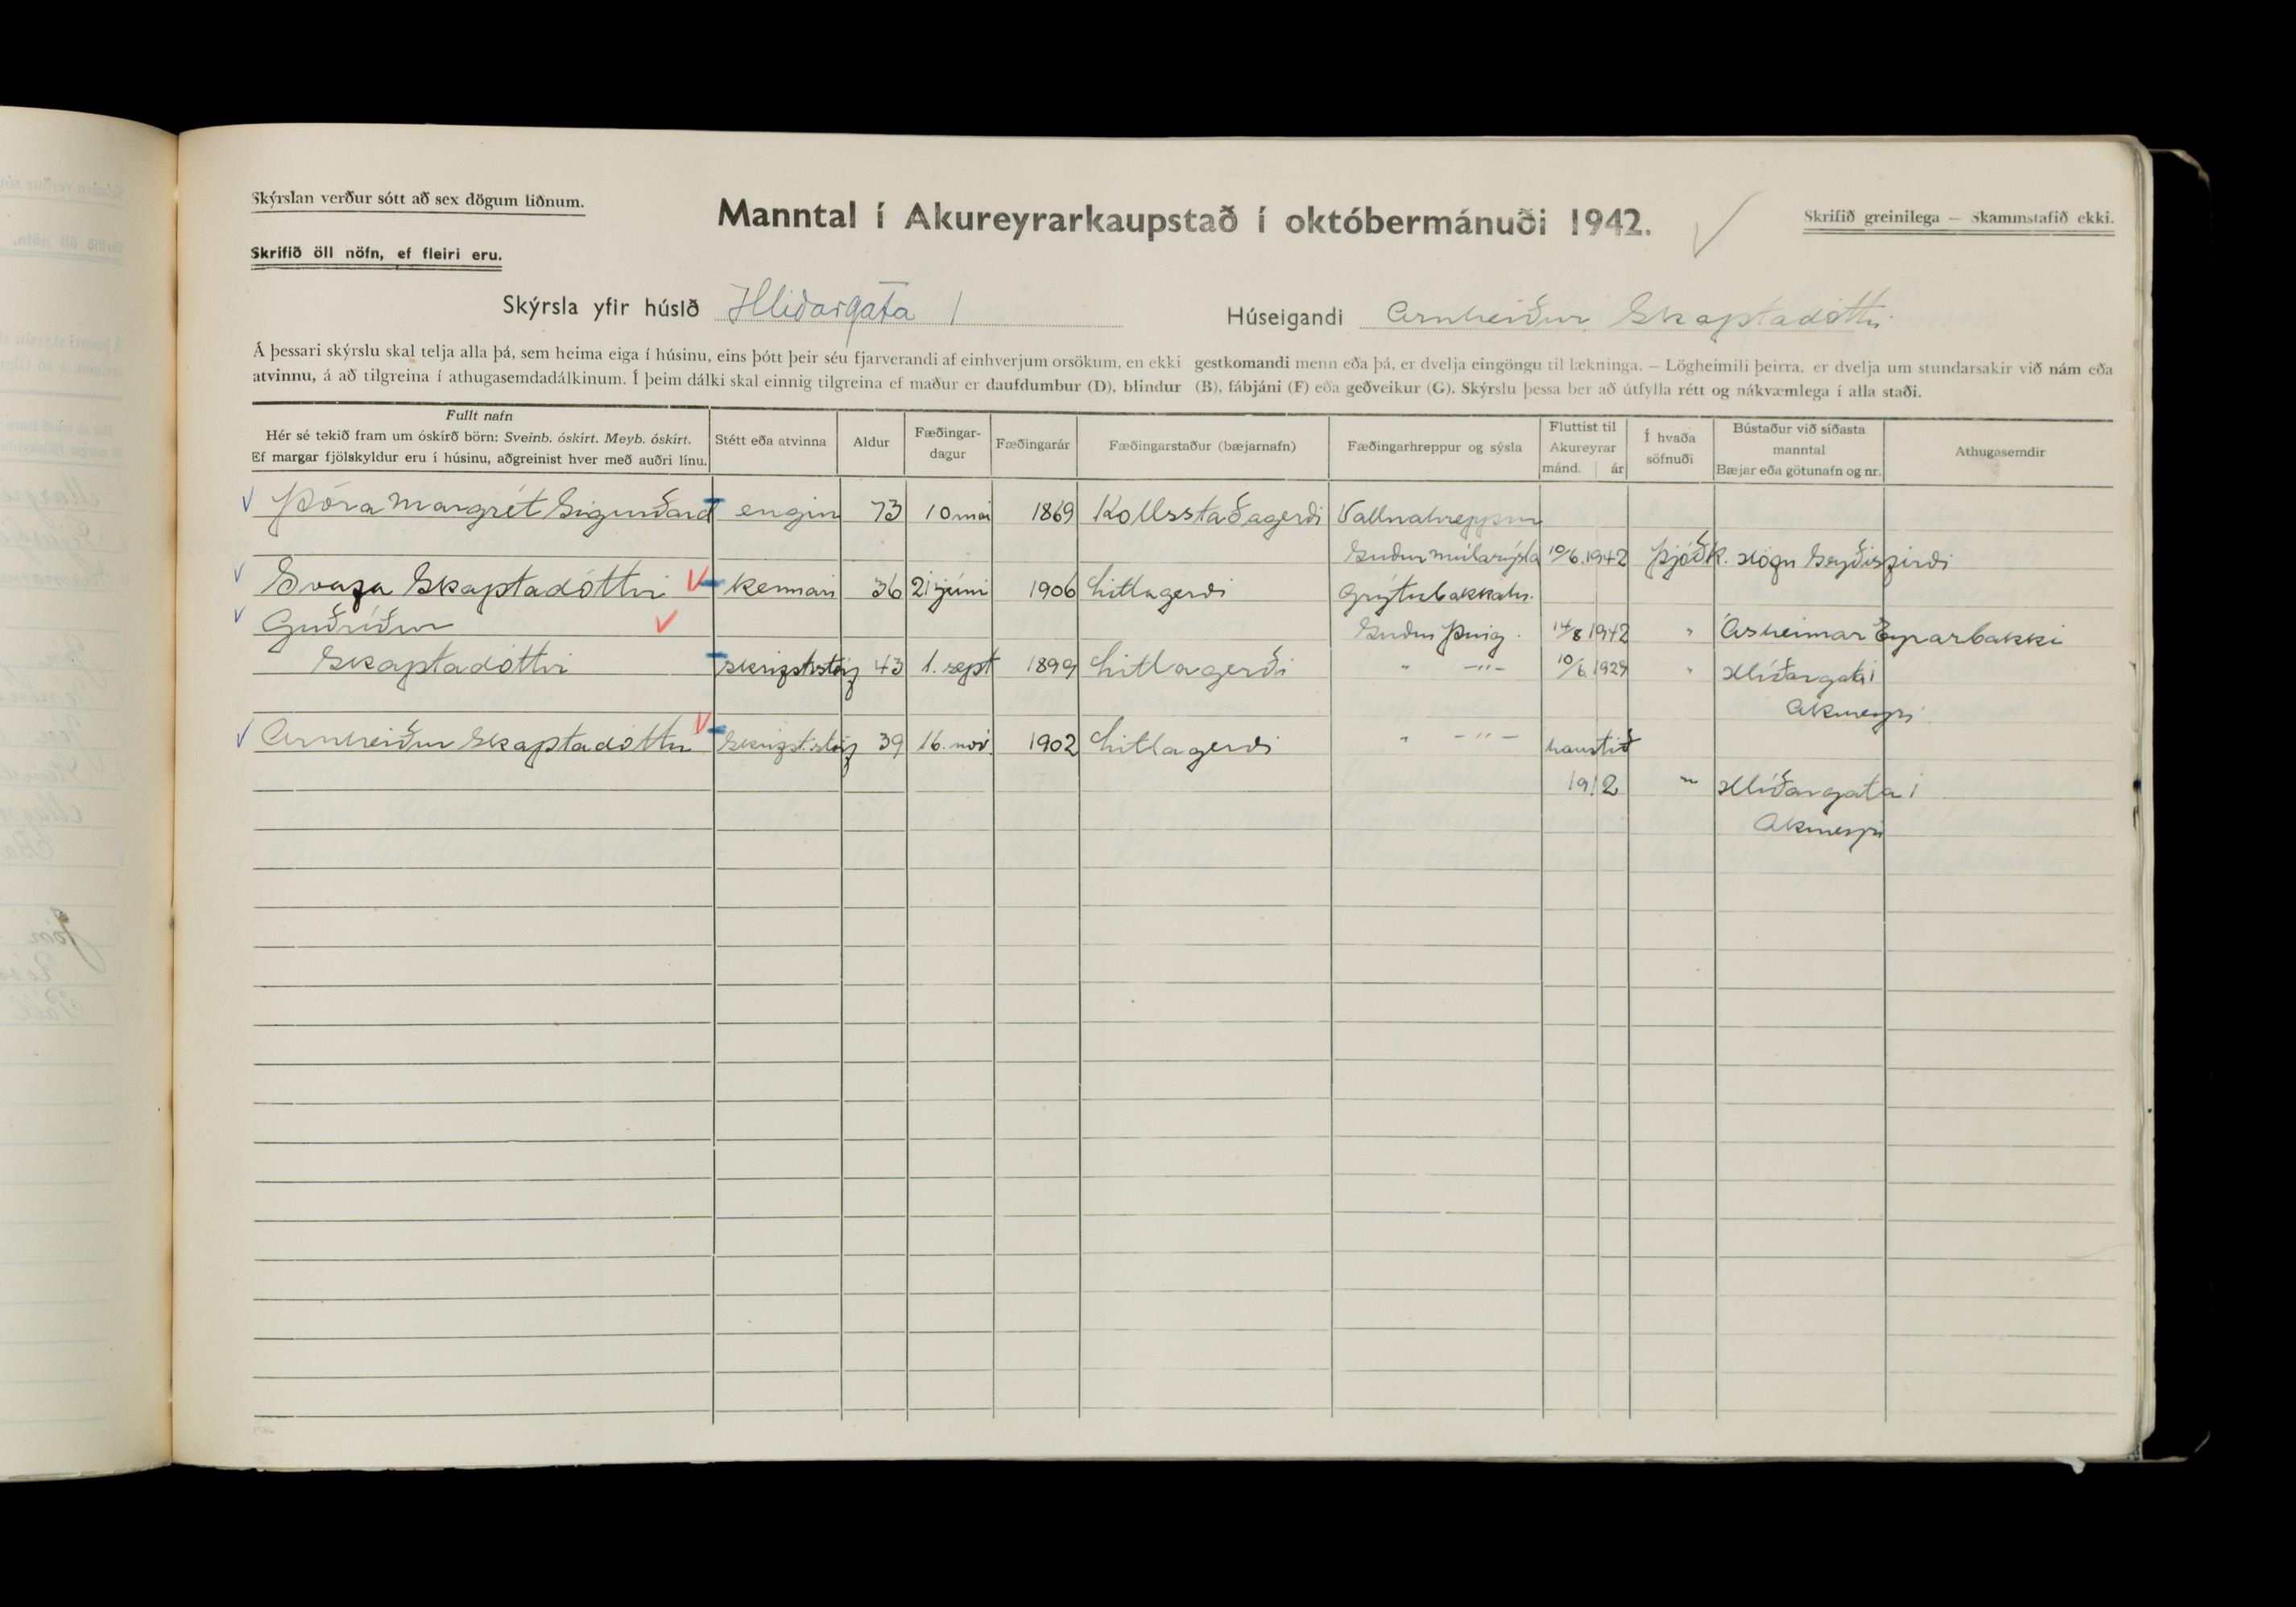 Skýrslan verður sótt að sex dögum liðnum.
Manntal í Akureyrarkaupstað í októbermánuði 1942.
Skrifið greinilega — Skammstafið ekki.
Skrifið öll nöfn, ef fleiri eru.
Skýrsla yfir húsið Hlíðargata 1 Húseigandi Arnheiður Skaptadóttir
Á þessari skýrslu skal telja alla þá, sem heima eiga í húsinu, eins þótt þeir séu fjarverandi af einhverjum orsökum, en ekki gestkomandi menn eða þá, er dvelja eingöngu til lækninga. — Lögheimili þeirra, er dvelja um stundarsakir við nám eða
atvinnu, á að tilgreina í athugasemdadálkinum. Í þeim dálki skal einnig tilgreina ef maður er daufdumbur (D), blindur (B), fábjáni (F) eða geðveikur (G). Skýrslu þessa ber að útfylla rétt og nákvæmlega í alla staði.
Fullt nafn
Hér sé tekið fram um óskírð börn: Sveinb. óskírt. Meyb. óskírt.
Ef margar fjölskyldur eru í húsinu, aðgreinist hver með auðri línu.
Stétt eða atvinna
Aldur
Fæðingar-
dagur
Fæðingarár
Fæðingarstaður (bæjarnafn)
Fæðingarhreppur og sýsla
Fluttist til
Akureyrar
mánd. ár
Í hvaða
söfnuði
Bústaður við síðasta
manntal
Bæjar eða götunafn og nr.
Athugasemdir
Þóra Margrét Sigurðard engin 73 10 mai 1869 Kollsstaðagerði Vallnahreppur
Suður múlasýsla 10/6 1942 Þjóðk. Högn Seyðisfirði
Svafa Skaptadóttir kennari 36 21 júni 1906 Litlagerði Grýtubakkahr.
Guðríður
Suður Þing. 14/8 1942 " Ásheimar Eyrarbakki
Skaptadóttir skrifststörf 43 1. sept 1899 Litlagerði " -"- 10/6 1929 " Hlíðargata 1
Akureyri
Arnheiður Skaptadóttir Skrifst.störf 39 16. nóv. 1902 Litlagerði " -"- haustið
1912 " Hlíðargata 1
Akureyri